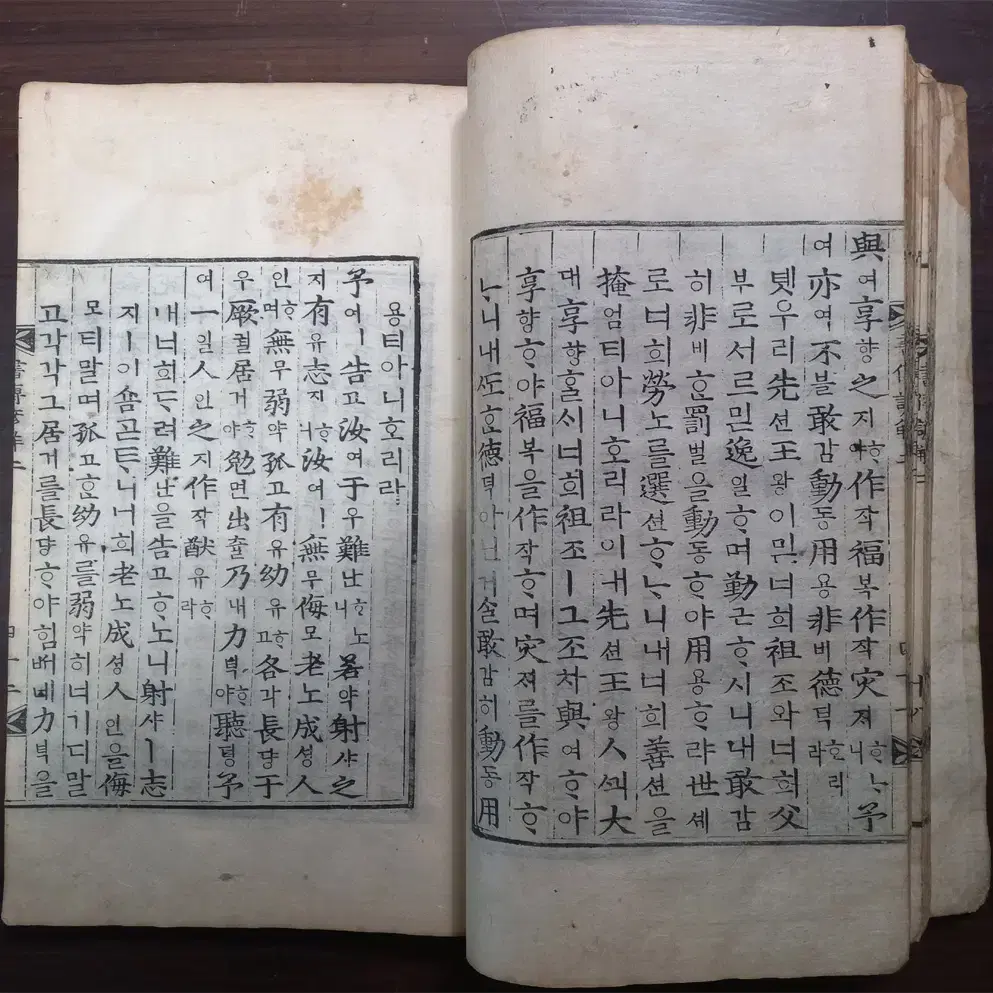 與여享향之지ᄒᆞ야作작福복作작灾ᄌᆡᄒᆞᄂᆞ니予
여亦역不블敢감動동用용非비德덕호리라
녯우리先션王왕이믿너희祖조와너희父
부로서르믿逸일ᄒᆞ며勤근ᄒᆞ시니내敢감
히非비ᄒᆞᆫ罰벌을動동ᄒᆞ야用용ᄒᆞ랴世셰
로너희勞노를選션ᄒᆞᄂᆞ니내너희善션을
掩엄티아니호리라이내先션王왕人ᄭᅴ大
대享향ᄒᆞᆯᄉᆡ너희祖조ㅣ그조차與여ᄒᆞ야
享향ᄒᆞ야福복을作작ᄒᆞ며灾ᄌᆡ를作작ᄒᆞ
ᄂᆞ니내ᄯᅩᄒᆞᆫ德덕아닌거슬敢감히動동用
용티아니호리라
予여ㅣ告고汝여于우難난ᄒᆞ노니若약射샤之
지有유志지ᄒᆞ니汝여ㅣ無무侮모老노成셩人
인ᄒᆞ며無무弱약孤고有유幼유ᄒᆞ고各각長댱于
우厥궐居거ᄒᆞ야勉면出츌乃내力력ᄒᆞ야聽텽予
여一일人인之지作작猷유ᄒᆞ라
내너희ᄃᆞ려難난을告고ᄒᆞ노니射샤ㅣ志
지ㅣ이숌ᄀᆞᆮᄐᆞ니너희老노成셩人인을侮
모티말며孤고ᄒᆞᆫ幼유를弱약히너기디말
고각각그居거를長댱ᄒᆞ야힘ᄡᅥ네力력을
書傳諺解二 四十二